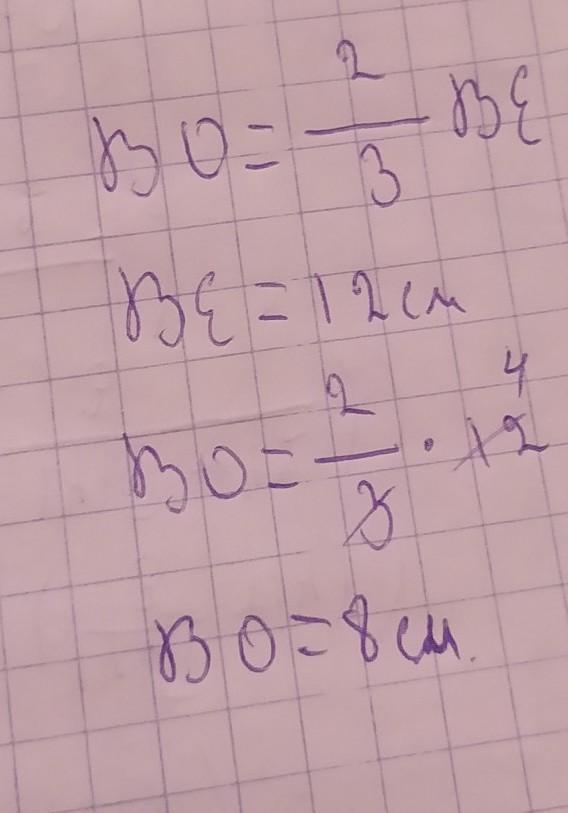 BO = 2/3 BE
BE = 12 см
BO = 2/3 · 12 4
BO = 8 см.